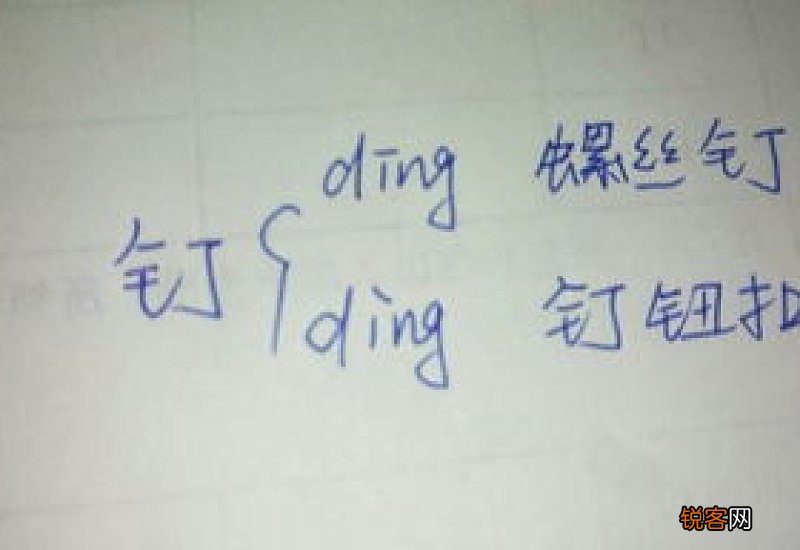 dīng 螺丝钉
钉
dìng 钉钮扣
锐客网